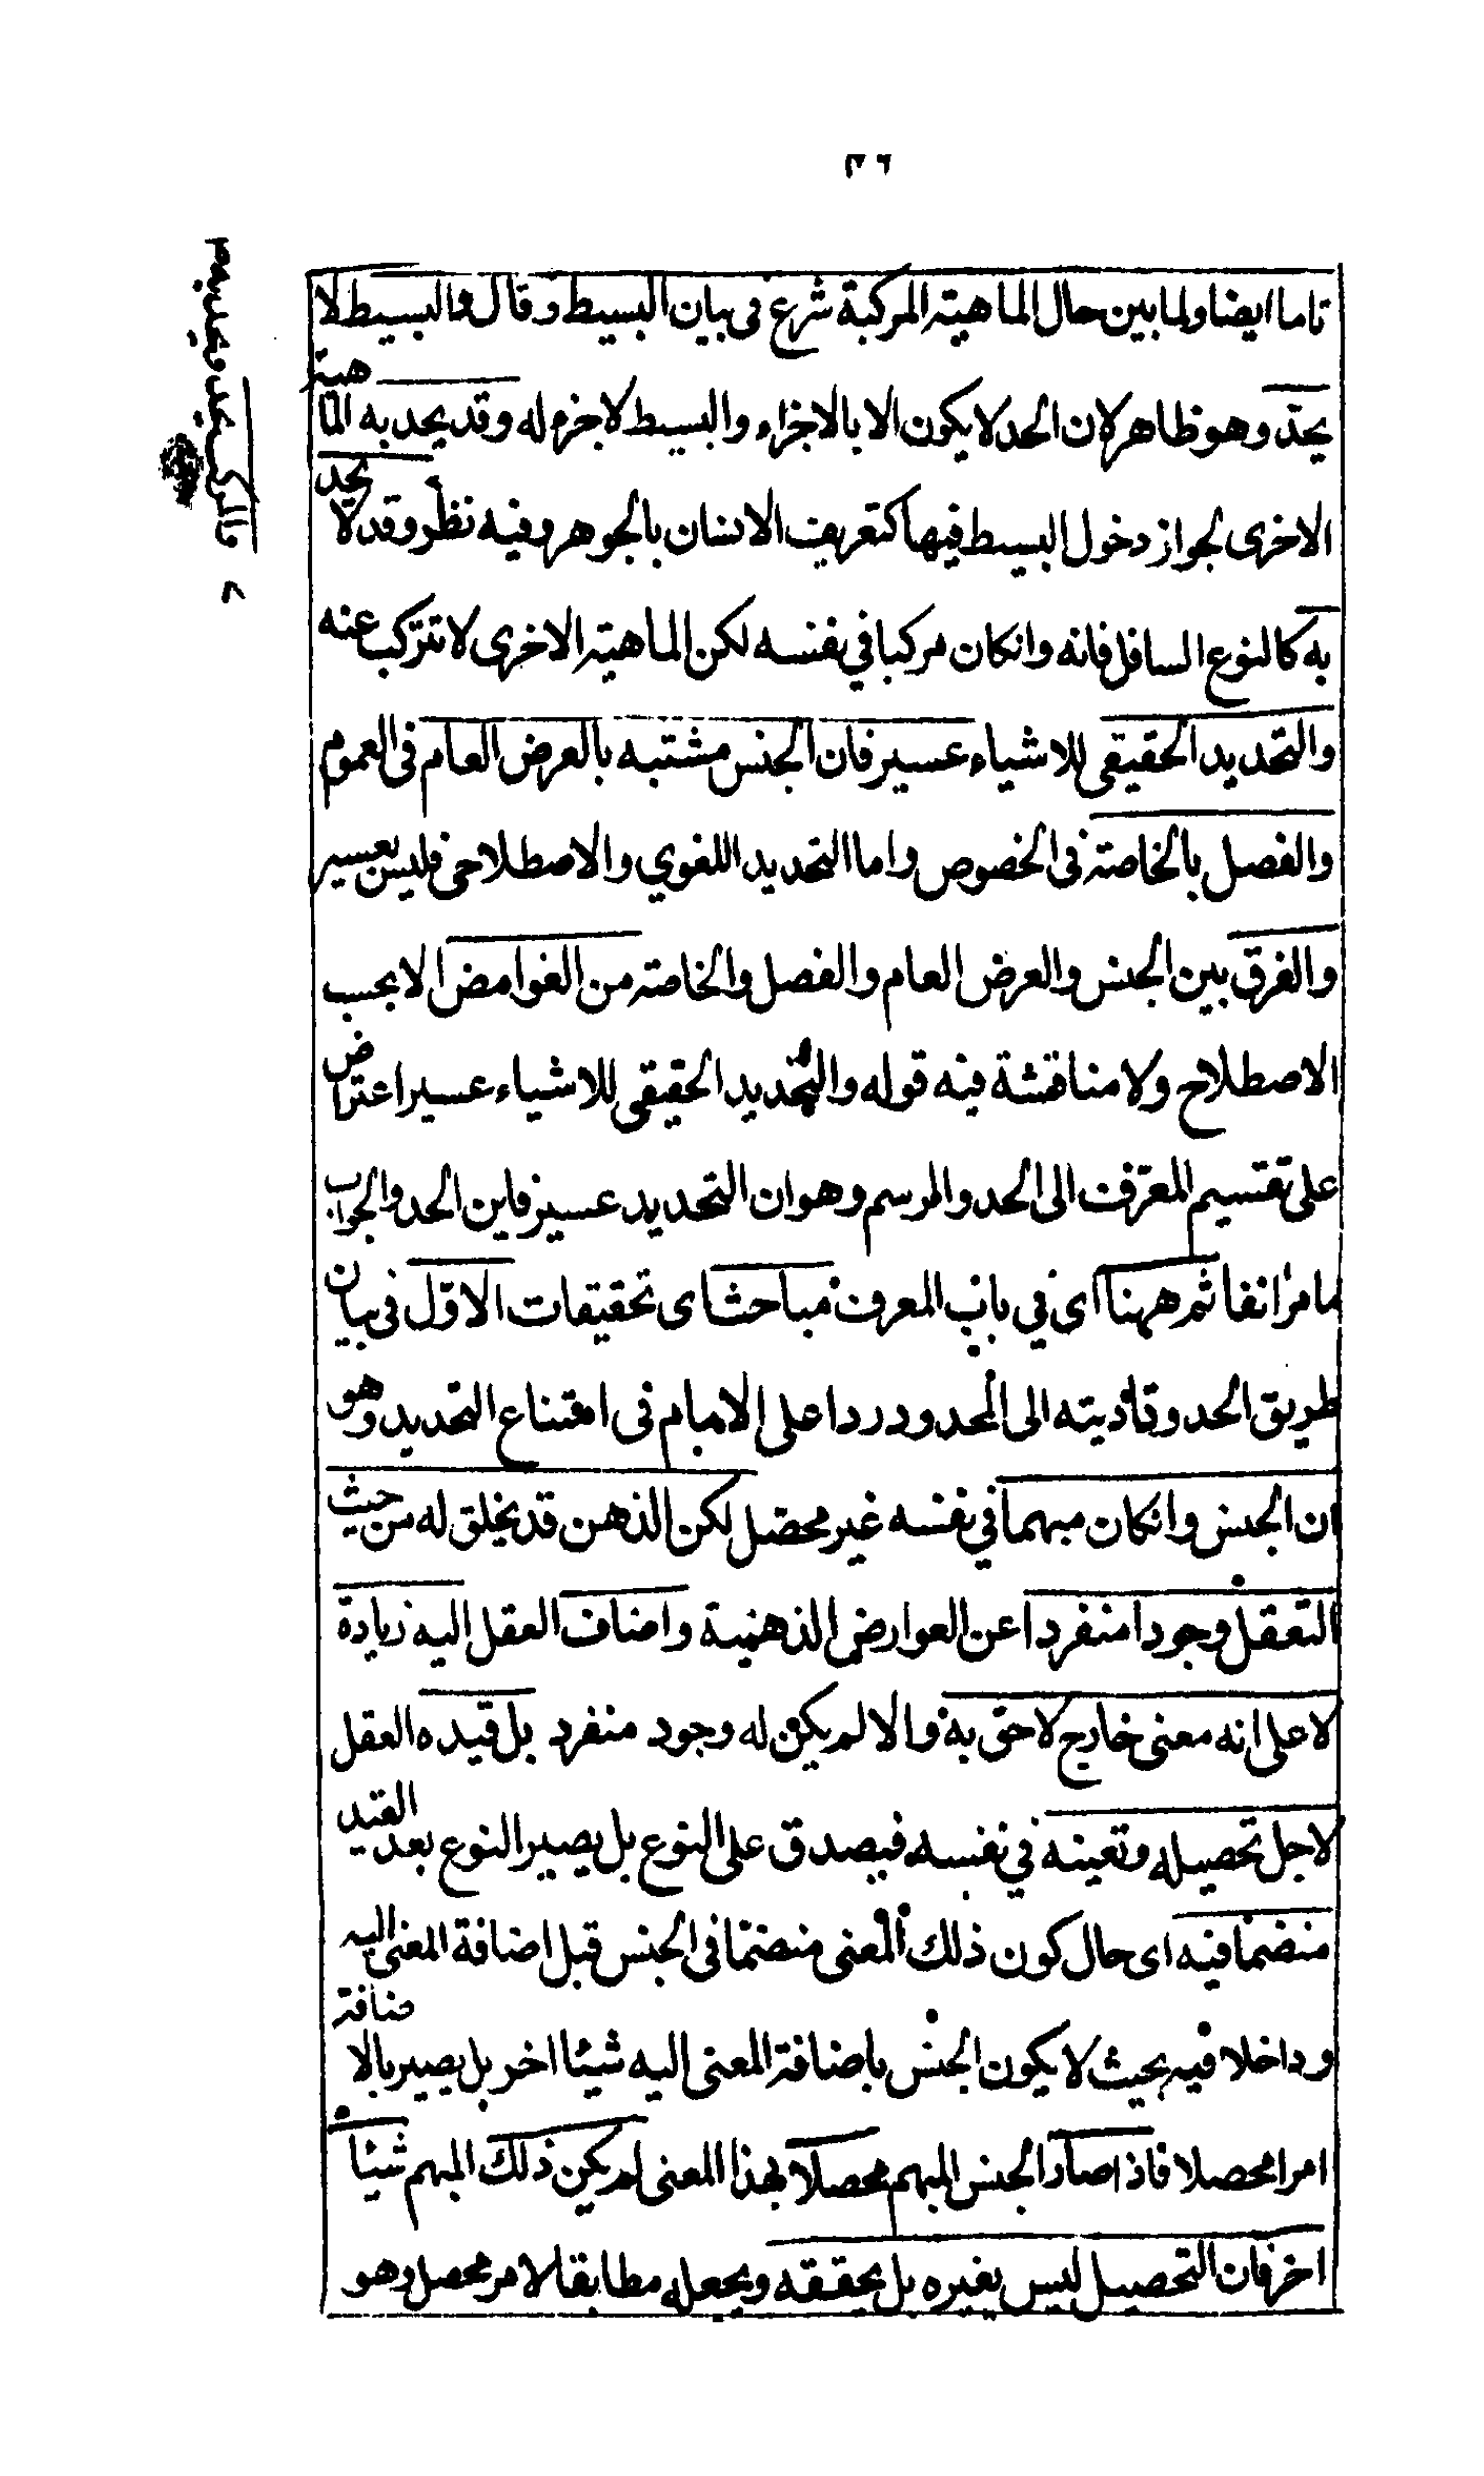 ٣٦
تاما ايضا ولما بين حال الماهية المركبة شرع فى بيان البسيط وقال والبسيط لا
يحدّ وهو ظاهر لان الحد لا يكون الا بالاجزاء والبسيط لا جزء له وقد يحد به الماهية
الاخرى لجواز دخول البسيط فيها كتعريف الانسان بالجوهر وفيه نظر وقد لا يحد
به كالنوع السافل فانه وانكان مركبا في نفسه لكن الماهية الاخرى لا تتركب عنه
والتحديد الحقيقي للاشياء عسير فان الجنس مشتبه بالعرض العام فى العموم
والفصل بالخاصة فى الخصوص واما التحديد اللغوي والاصطلاحى فليس بعسير
والفرق بين الجنس والعرض العام والفصل والخاصة من الغوامض الا بحسب
الاصطلاح ولا مناقشة فيه قوله والتحديد الحقيقى للاشياء عسير اعتراض
على تقسيم المعرّف الى الحد والرسم وهو ان التحديد عسير فاين الحد والجواب
ما مر انفا ثم ههنا اى في باب المعرف مباحث اى تحقيقات الاوّل فى بيان
طريق الحد وتأديته الى المحدود ردا على الامام فى امتناع التحديد وهو
ان الجنس وانكان مبهما في نفسه غير محصّل لكن الذهن قد يخلق له من حيث
التعقل وجودا منفردا عن العوارض الذهنية واضاف العقل اليه زيادة
لا على انه معنى خارج لاحق به والا لم يكن له وجود منفرد بل قيده العقل
لاجل تحصيله وتعينه في نفسه فيصدق على النوع بل يصير النوع بعد القيد
منضما فيه اى حال كون ذلك المعنى منضمّا فى الجنس قبل اضافة المعنى اليه
وداخلا فيه بحيث لا يكون الجنس باضافة المعنى اليه شيئا اخر بل يصير بالاضافة
امرا محصلا فاذا صار الجنس المبهم محصلا بهذا المعنى لم يكن ذلك المبهم شيئا
اخر فان التحصيل ليس يغيره بل يحققه ويجعله مطابقا لامر محصل وهو
فالمركب يحد ويحد به